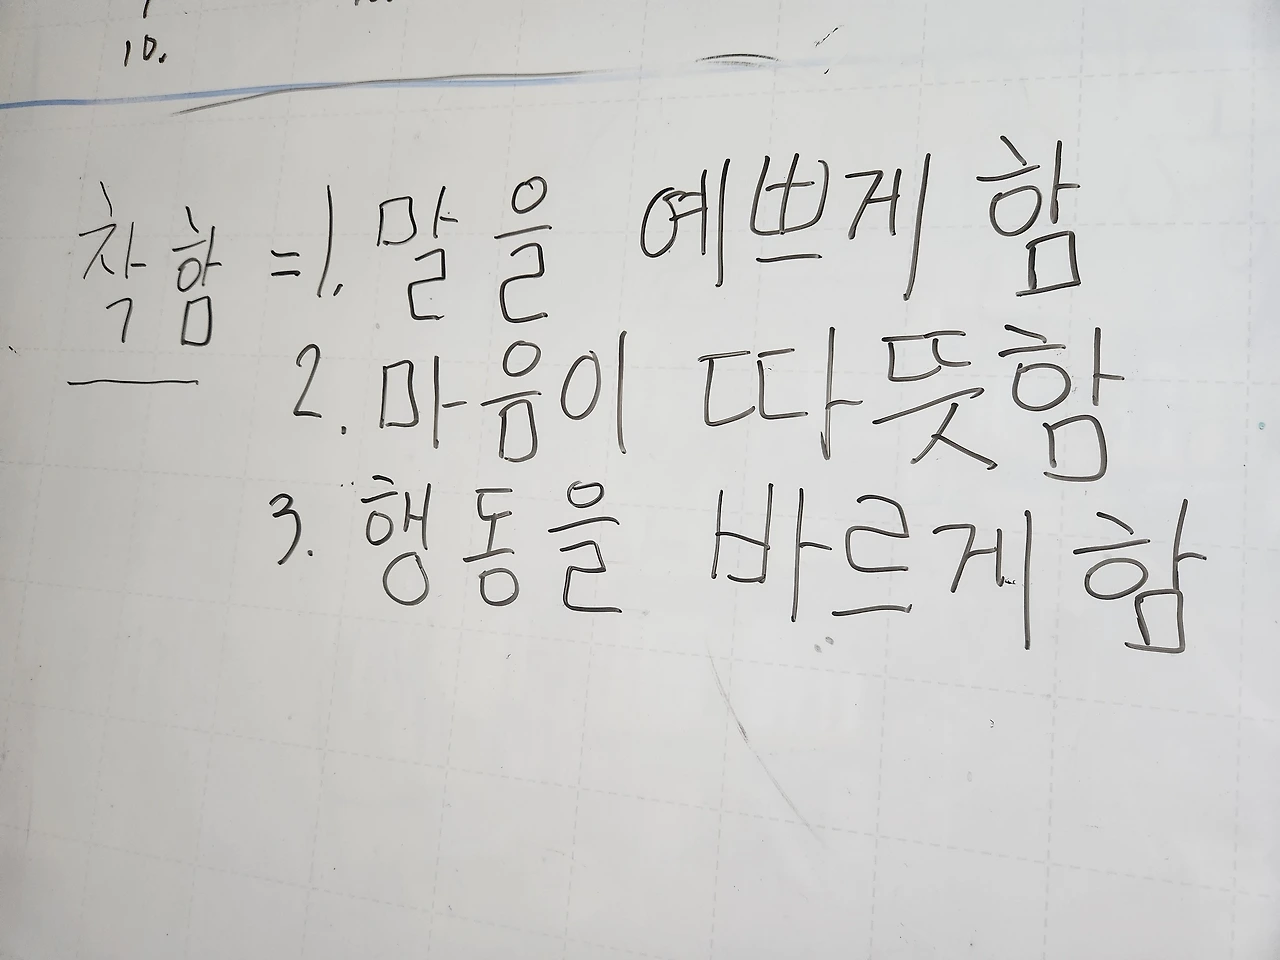 10.
착함 = 1. 말을 예쁘게 함
2. 마음이 따뜻함
3. 행동을 바르게 함